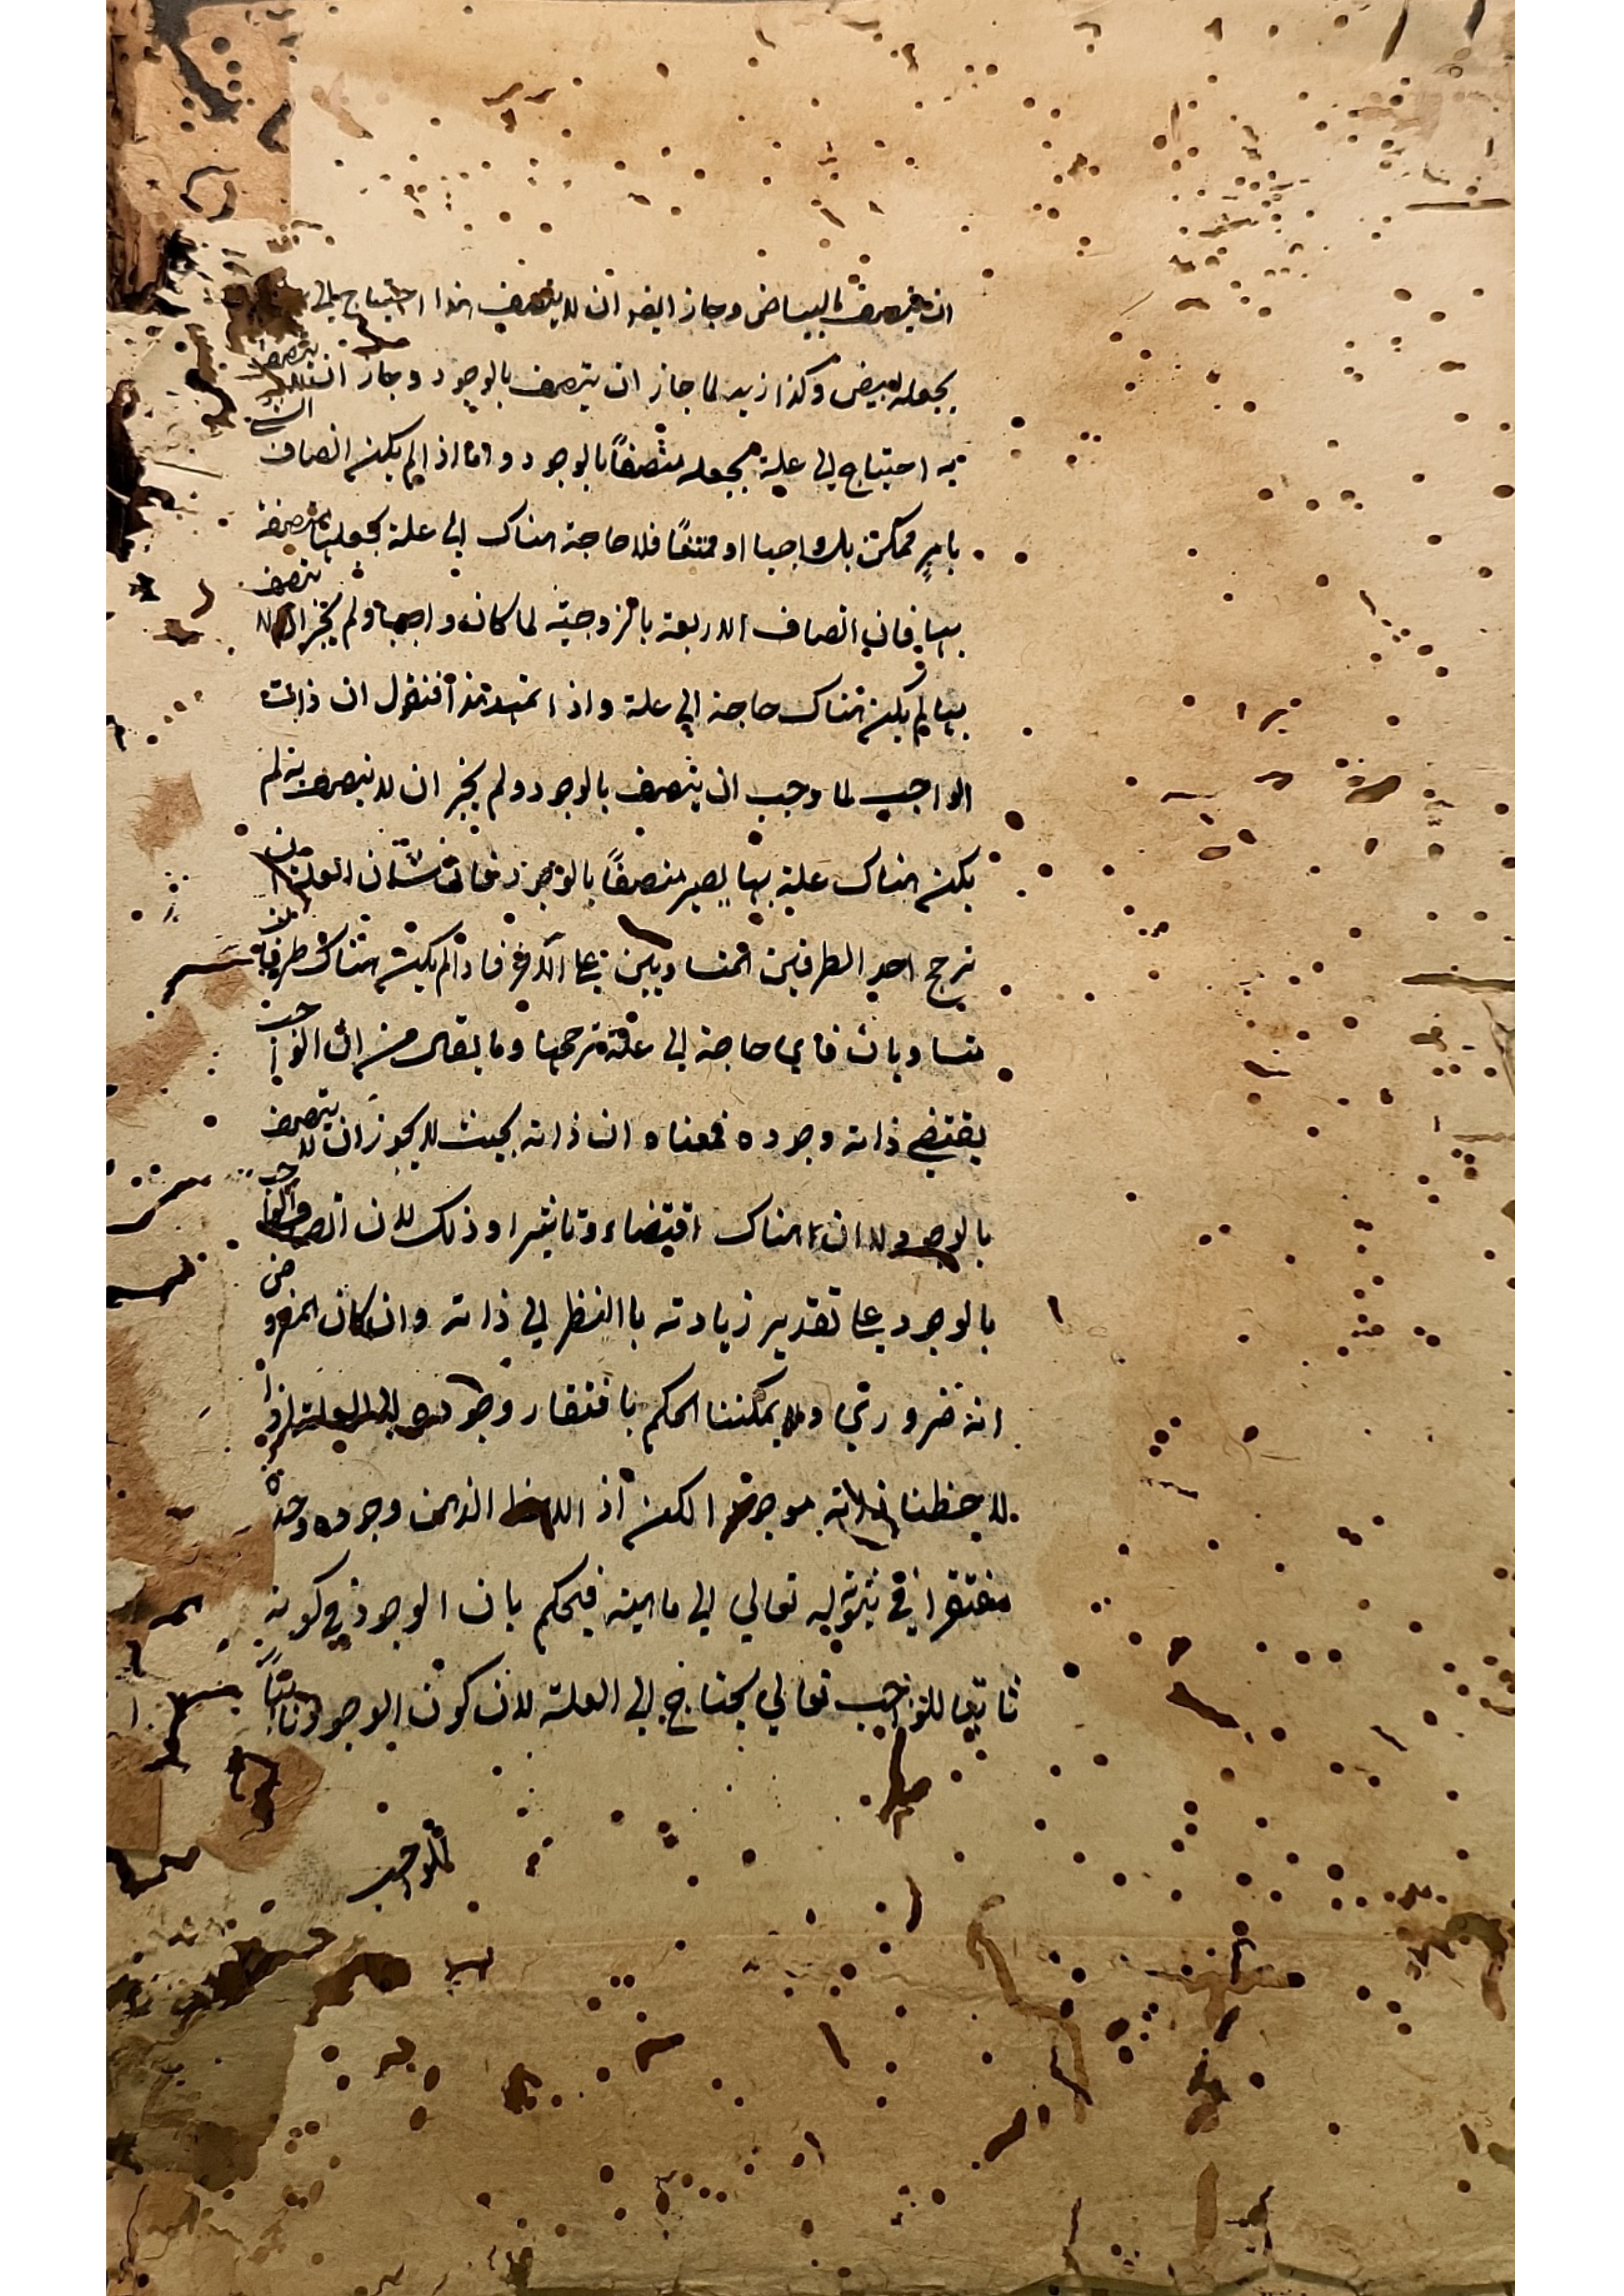 ان يتصف بالبياض وجاز ايضا ان لا يتصف هذا احتياج الى
يجعله ابيض وكذا زيد لما جاز ان يتصف بالوجود وجاز ان لا يتصف
به احتياج الى علة تجعله متصفاً بالوجود واما اذا لم يكن اتصاف الشئ
بامرٍ ممكن بل واجبا او ممتنعاً فلا حاجة هناك الى علة تجعلها متصفة
بها فان اتصاف الاربعة بالزوجية لما كان واجبا ولم يجز ان لا يتصف
بها لم يكن هناك حاجة الى علة واذا تمهد هذا فنقول ان ذات
الواجب لما وجب ان يتصف بالوجود ولم يجز ان لا يتصف به لم
يكن هناك علة بها يصير متصفاً بالوجود فان شان العلة ان
ترجح احد الطرفين المتساويين على الاخر فاذا لم يكن هناك طرفان
متساويان فاي حاجة الى علة ترجحها وما يقال من ان الواجب
يقتضي ذاته وجوده فمعناه ان ذاته بحيث لا يجوز ان لا يتصف
بالوجود لا ان هناك اقتضاء وتاثيرا وذلك لان اتصاف الواجب
بالوجود على تقدير زيادته باالنظر الى ذاته وان كان المفروض
انه ضروري ولا يمكننا الحكم بافتقار وجوده الى العلة اذا
لاحظنا ذاته موجودا لكن اذا لاحظ الذهن وجوده وحده
مفتقرا في ثبوته له تعالي الى ماهيته فيحكم بان الوجود في كونه
ثابتا للواجب تعالي يحتاج الى العلة لان كون الوجود ثابتاً
للواجب